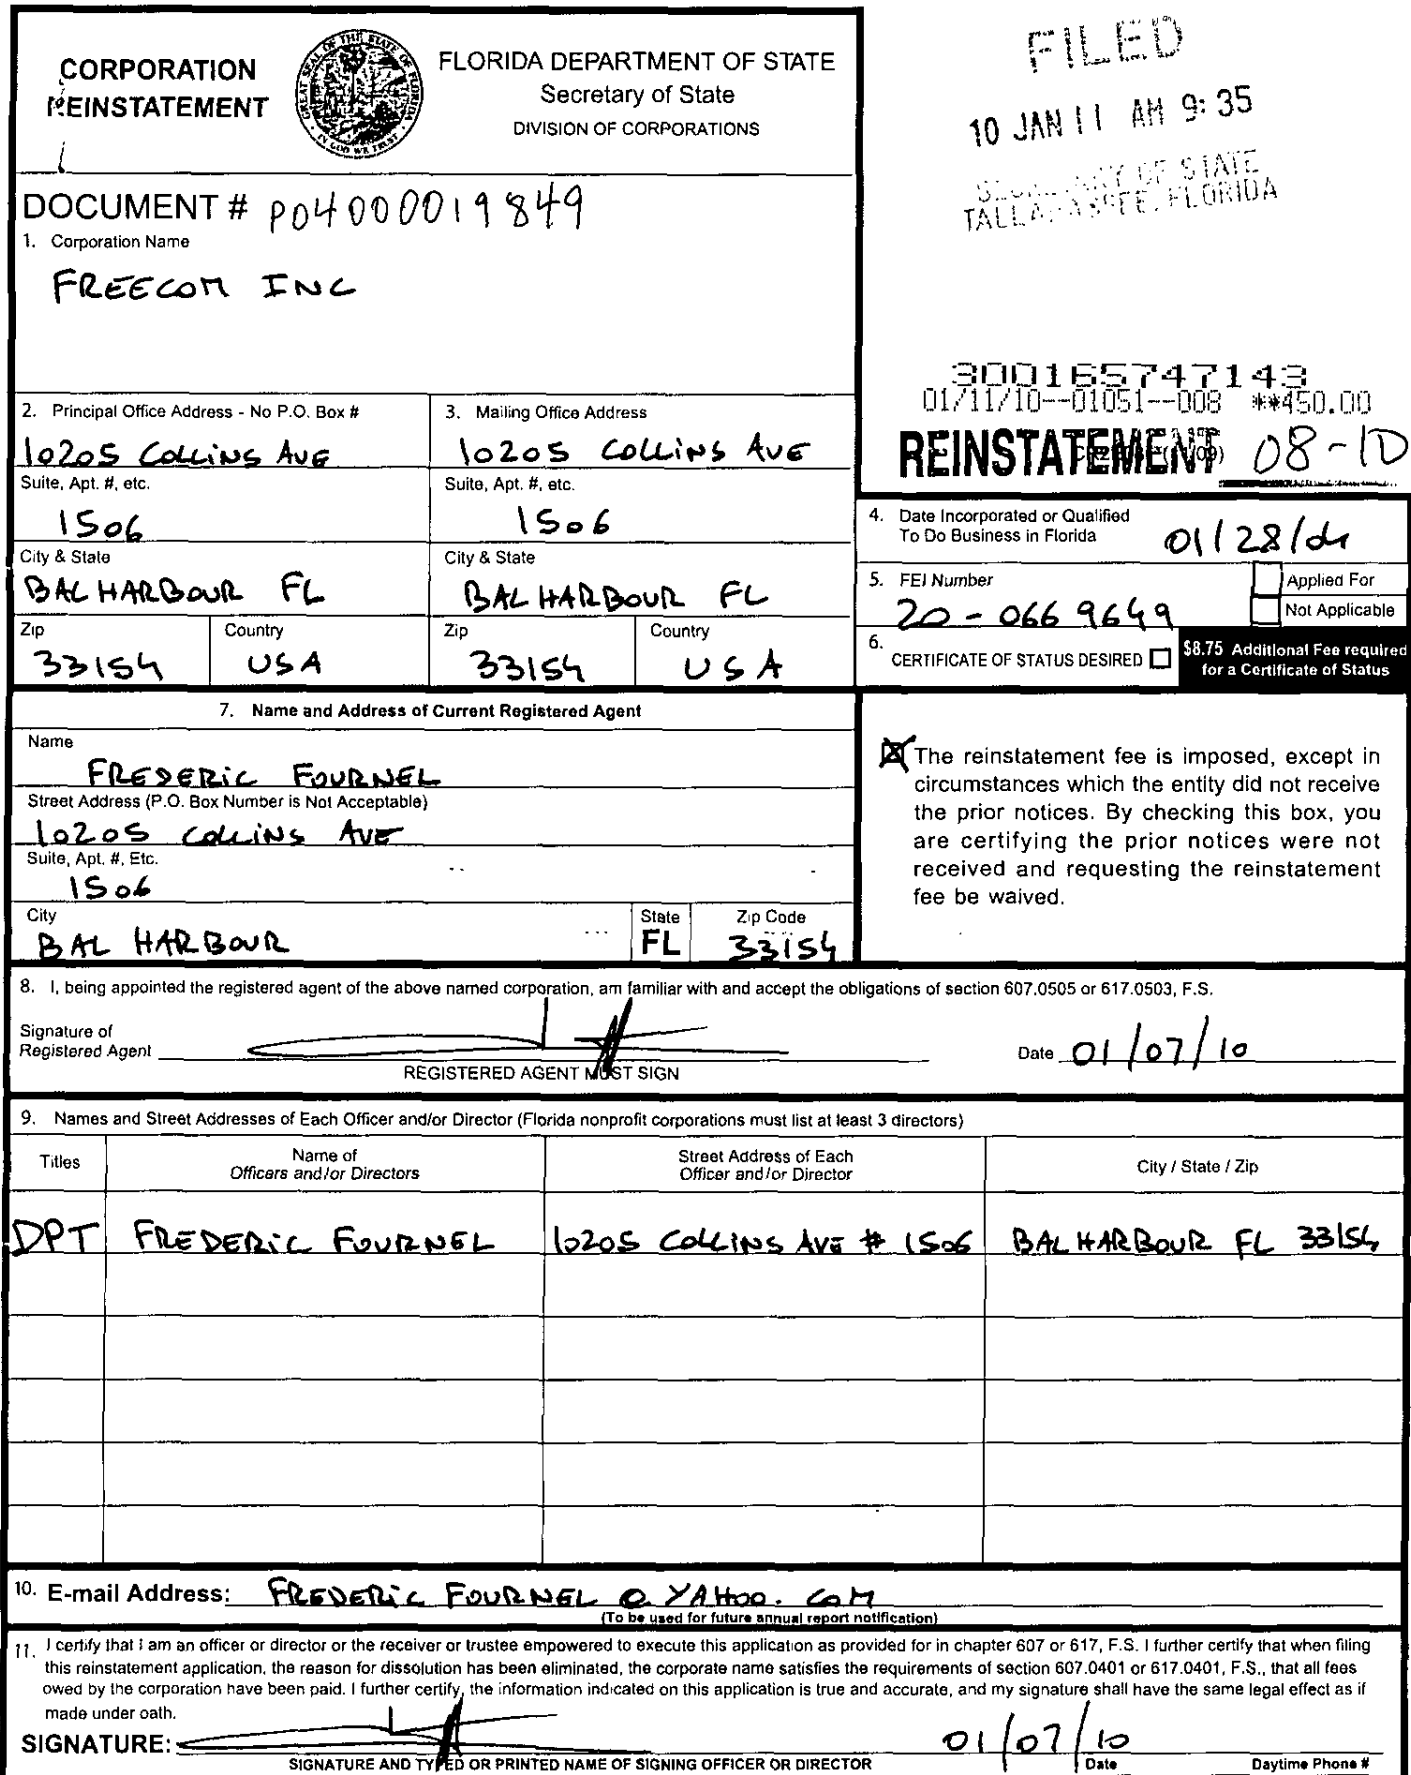 CORPORATION
REINSTATEMENT
FLORIDA DEPARTMENT OF STATE
Secretary of State
DIVISION OF CORPORATIONS
FILED
10 JAN 11 AM 9:35
SECRETARY OF STATE
TALLAHASSEE, FLORIDA
DOCUMENT # P04000019849
1. Corporation Name
FREECOM INC
300165747143
01/11/10--01051--008 **450.00
REINSTATEMENT 08-10
2. Principal Office Address - No P.O. Box #
10205 COLLINS AVE
Suite, Apt. #, etc.
1506
City & State
BAL HARBOUR FL
Zip Country
33154 USA
3. Mailing Office Address
10205 COLLINS AVE
Suite, Apt. #, etc.
1506
City & State
BAL HARBOUR FL
Zip Country
33154 USA
4. Date Incorporated or Qualified
To Do Business in Florida 01/28/04
5. FEI Number
20-0669649
Applied For
Not Applicable
6. CERTIFICATE OF STATUS DESIRED
$8.75 Additional Fee required
for a Certificate of Status
7. Name and Address of Current Registered Agent
Name
FREDERIC FOURNEL
Street Address (P.O. Box Number is Not Acceptable)
10205 COLLINS AVE
Suite, Apt. #, Etc.
1506
City State Zip Code
BAL HARBOUR FL 33154
The reinstatement fee is imposed, except in
circumstances which the entity did not receive
the prior notices. By checking this box, you
are certifying the prior notices were not
received and requesting the reinstatement
fee be waived.
8. I, being appointed the registered agent of the above named corporation, am familiar with and accept the obligations of section 607.0505 or 617.0503, F.S.
Signature of
Registered Agent
Date 01/07/10
REGISTERED AGENT MUST SIGN
9. Names and Street Addresses of Each Officer and/or Director (Florida nonprofit corporations must list at least 3 directors)
Titles
Name of
Officers and/or Directors
Street Address of Each
Officer and/or Director
City / State / Zip
DPT FREDERIC FOURNEL 10205 COLLINS AVE # 1506 BAL HARBOUR FL 33154
10. E-mail Address: FREDERIC FOURNEL @ YAHOO.COM
(To be used for future annual report notification)
11. I certify that I am an officer or director or the receiver or trustee empowered to execute this application as provided for in chapter 607 or 617, F.S. I further certify that when filing
this reinstatement application, the reason for dissolution has been eliminated, the corporate name satisfies the requirements of section 607.0401 or 617.0401, F.S., that all fees
owed by the corporation have been paid. I further certify, the information indicated on this application is true and accurate, and my signature shall have the same legal effect as if
made under oath.
SIGNATURE: 01/07/10
SIGNATURE AND TYPED OR PRINTED NAME OF SIGNING OFFICER OR DIRECTOR Date Daytime Phone #